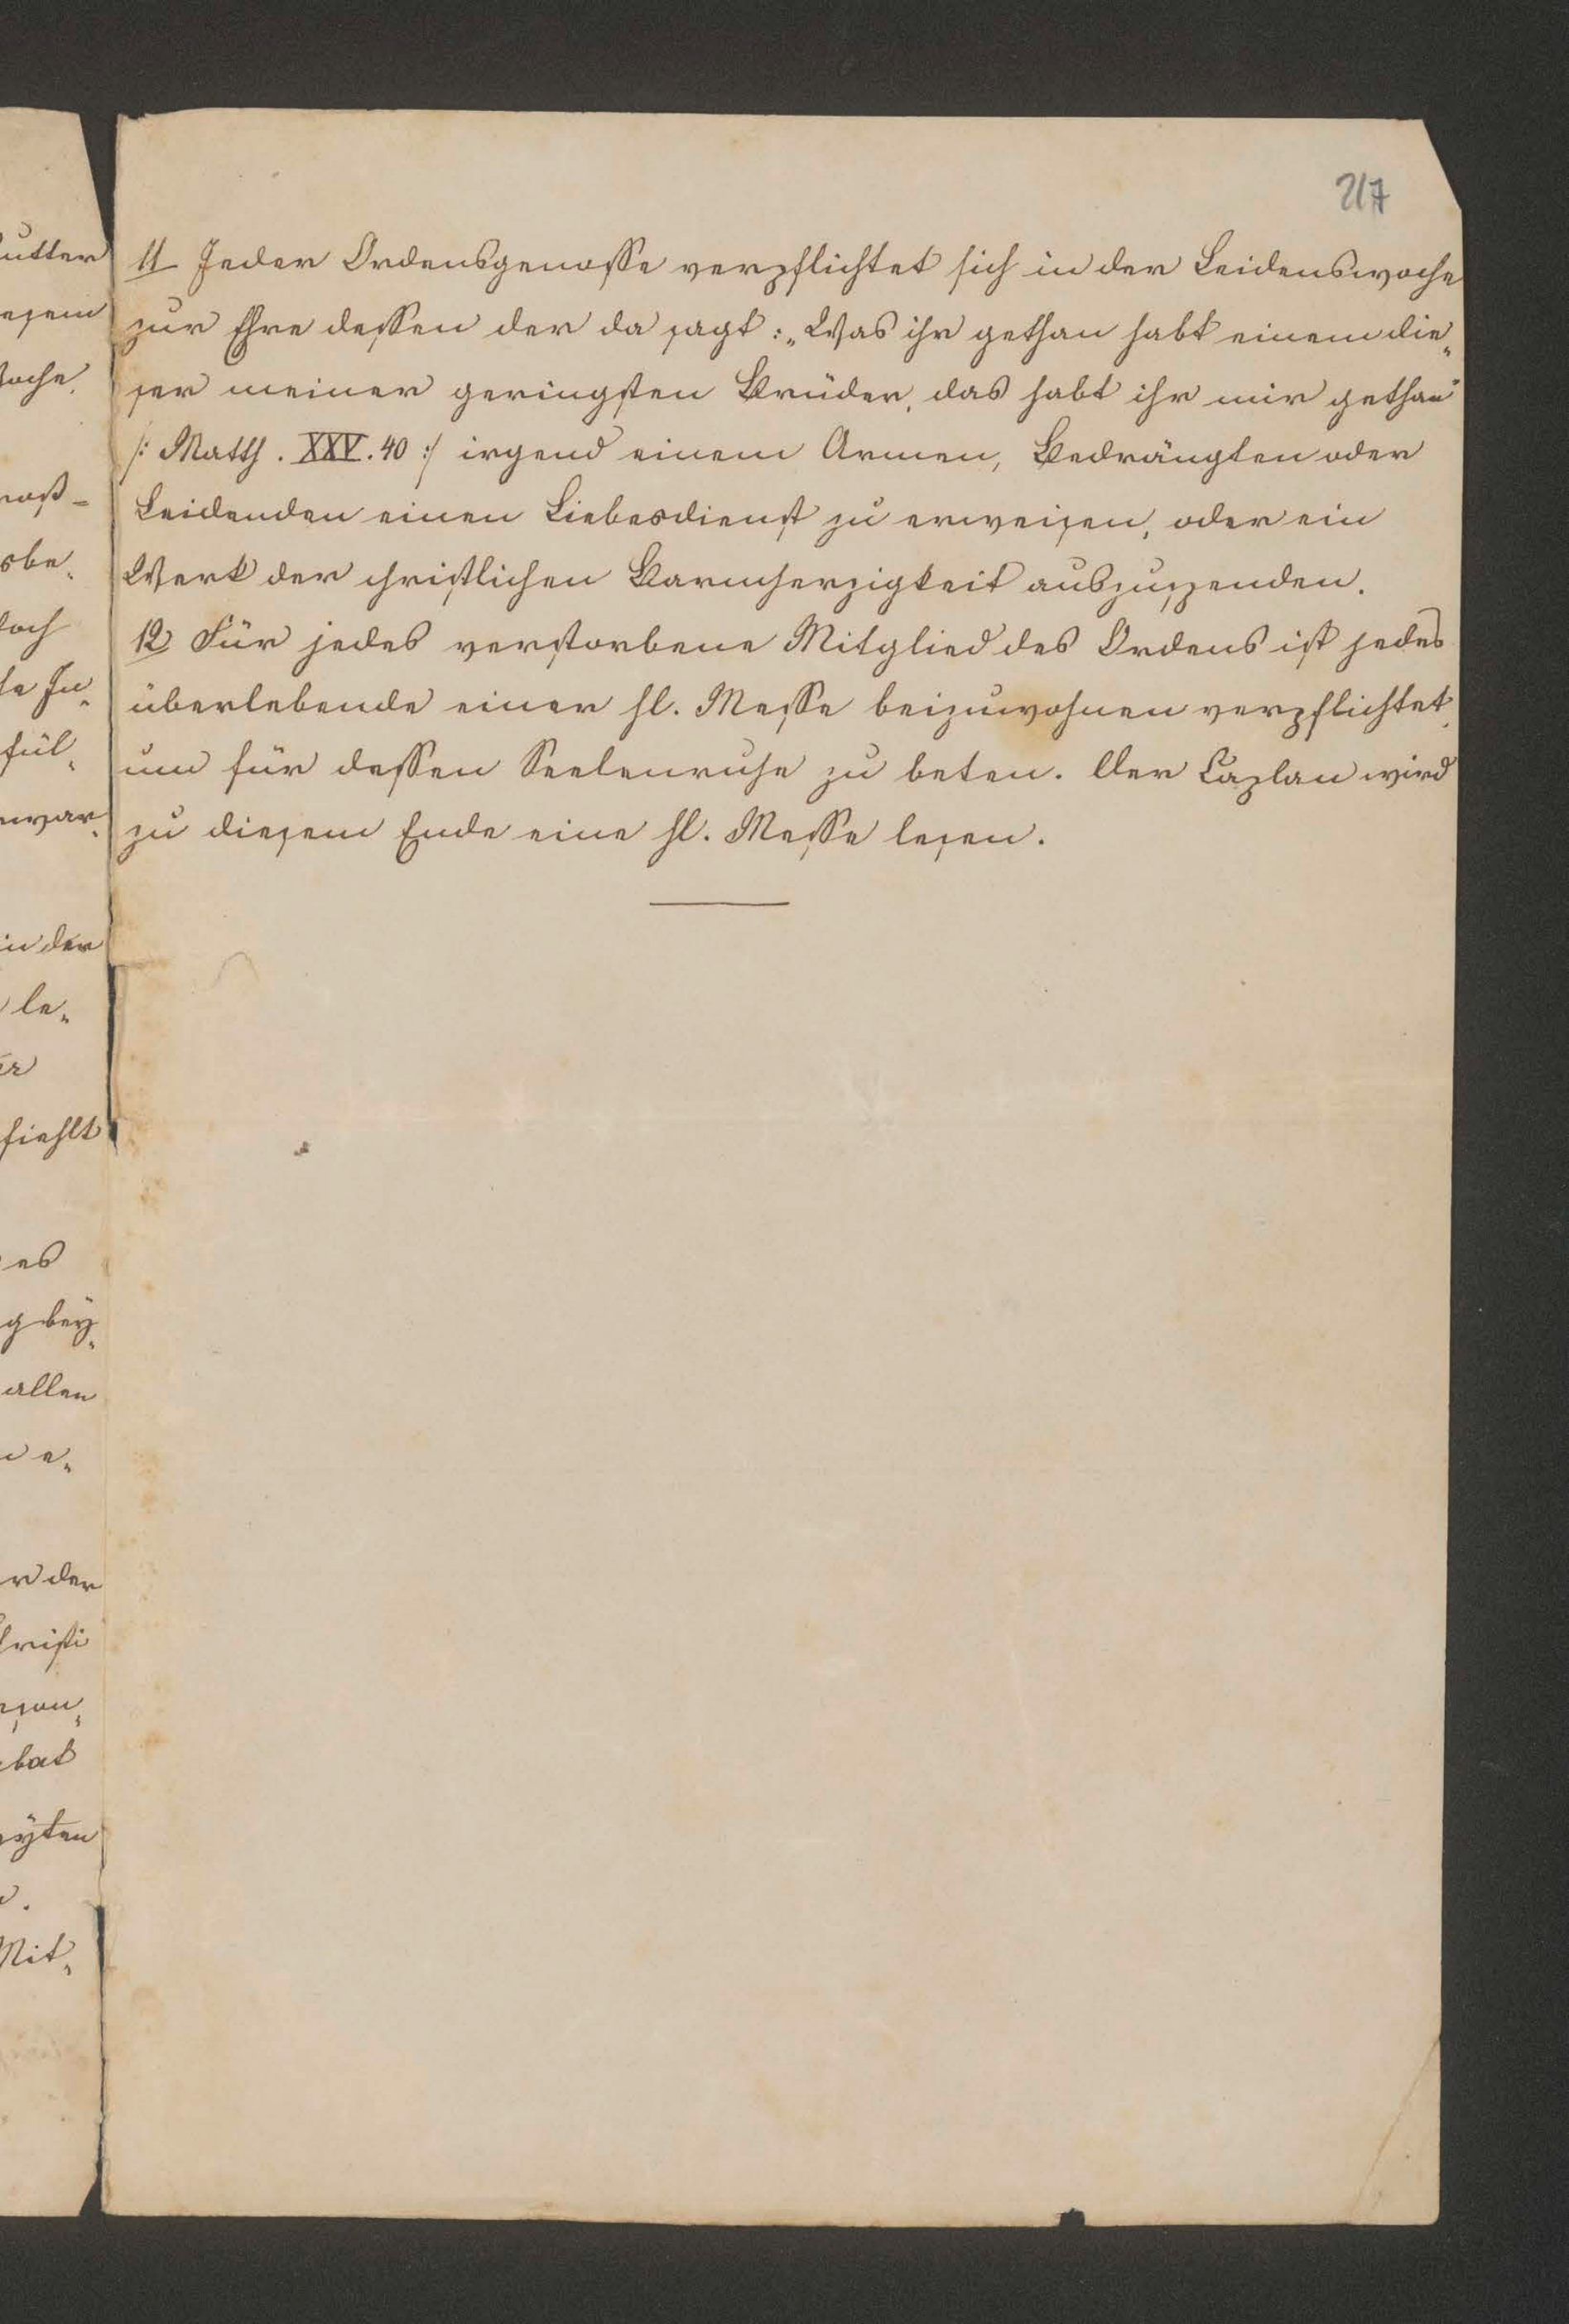 217
utter
esem
oche.
roß-
sbe„
och
le In„
fül„
war„
in der
le„
er
fiehlt
es
g bey„
allen
n e„
r der
hristi
bat
Mit„
11 Jeder Ordensgenosse verpflichtet sich in der Leidenswoche
zur Ehre dessen der da sagt: „Was ihr gethan habt einem die„
ser meiner geringsten Brüder, das habt ihr mir gethan"
/: Matth. XXV. 40 :/ irgend einem Armen, Bedrängten oder
Leidenden einen Liebesdienst zu erweisen, oder ein
Werk der christlichen Barmherzigkeit auszuspenden.
12 Für jedes verstorbene Mitglied des Ordens ist jedes
überlebende einer hl. Messe beizuwohnen verpflichtet,
um für dessen Seelenruhe zu beten. Der Caplan wird
zu diesem Ende eine hl. Messe lesen.